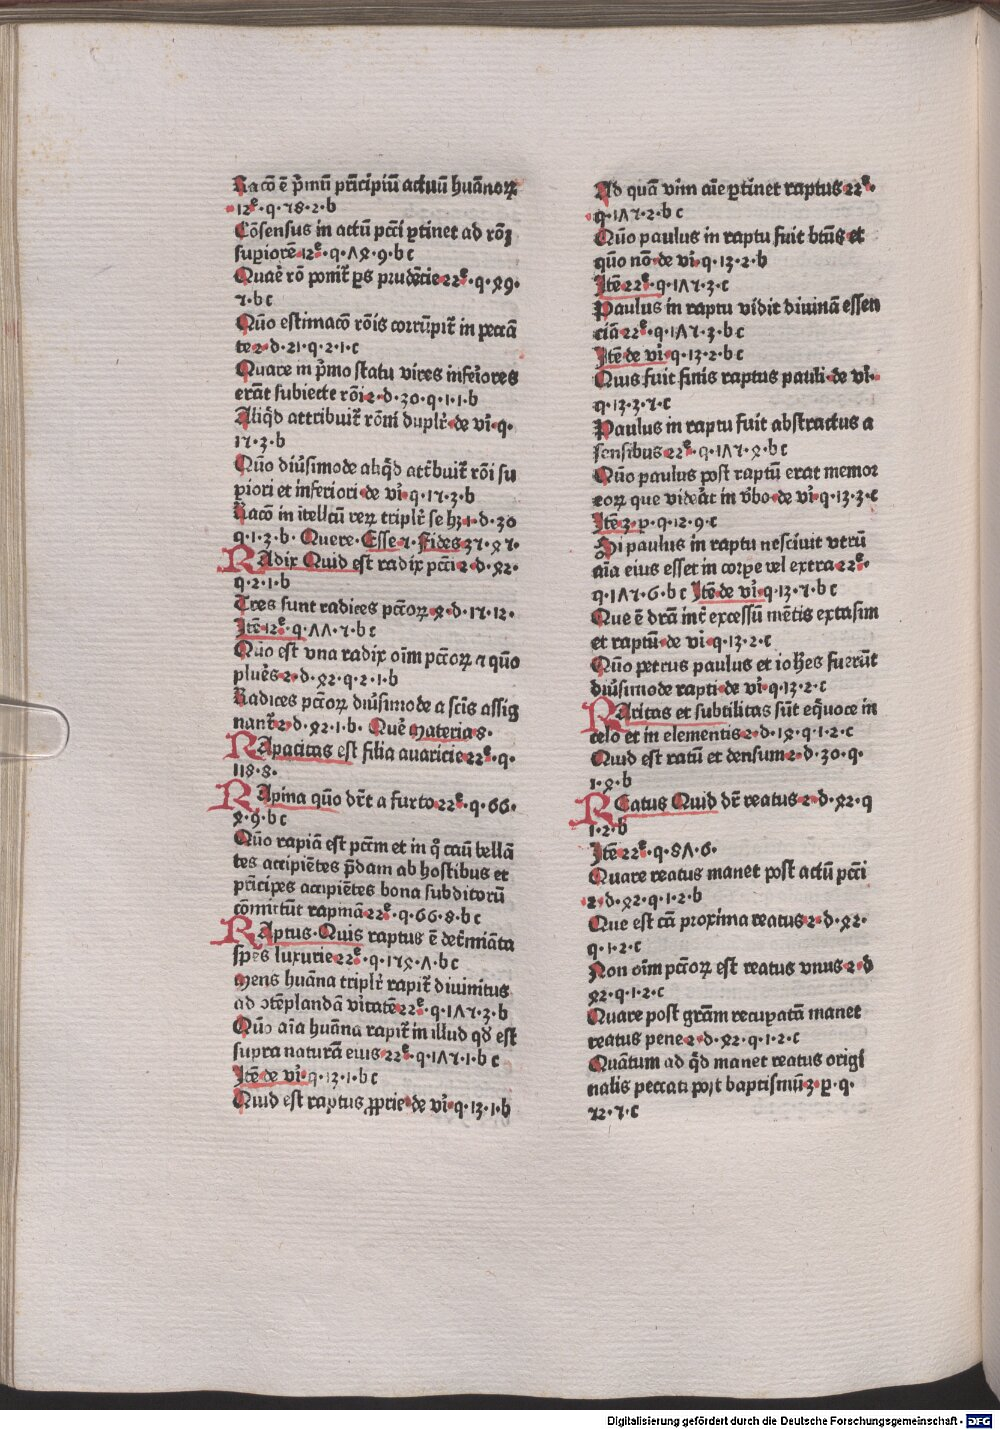 Racō ē p̄mū prīcipiū actuū huānoꝝ
12ᵉ·q·18·2·b
Cōsensus in actū pcc̄i ꝑtinet ad rōꝫ
suꝑiorē 12ᵉ·q·Λ8·9·b c
Quaē rō ponit̄ ꝑs prudētie 22ᵉ·q·89·
1·b c
Quō estimacō rōis corrūpit̄ in peccā
te 2·d·21·q·2·1·c
Quare in p̄mo statu vires inferiores
erāt subiecte rōi 2·d·30·q·1·1·b
Aliq̄d attribuit̄ rōni duplr̄·de vi̇·q·
17·3·b
Quō diūsimode aliq̄d attribuit̄ rōi su
piori et inferiori·de vi̇·q·17·3·b
Racō in itellcū reꝝ triplr̄ se hꝫ 1·d·30
q·1·3·b· Quere·Esse 1· Fides 31·87·
RAdix Quid est radix pcc̄i 2·d·82·
q·2·1·b
Tres sunt radices pcc̄oꝝ 8·d·17·12·
Itē 12ᵉ·q·ΛΛ·7·b c
Quō est vna radix oīm pcc̄oꝝ ⁊ quō
plueš 2·d·82·q·2·1·b
Radices pcc̄oꝝ diūsimode a scīs assig
nant̄ 2·d·82·1·b· Quē Materia 8·
RApacitas est filia auaricie 22ᵉ·q·
118·8·
RApina quō dr̄t a furto 22ᵉ·q·66·
8·9·b c
Quō rapiā est pcc̄m et in q̊ caū bellā
tes accipiētes p̄dam ab hostibus et
prīcipes accipiētes bona subditorū
cōmittūt rapinā 22ᵉ·q·66·8·b c
RAptus·Quis raptus ē det̄miāta
spēs luxurie 22ᵉ·q·178·Λ·b c
Mens huāna triplr̄ rapit̄ diuinitus
ad ↄtēplandā v̄itatē 22ᵉ·q·1Λ7·3·b
Quō aīa huāna rapit̄ in illud qđ est
supra naturā eius 22ᵉ·q·1Λ7·1·b c
Itē de vi̇·q·13·1·b c
Quid est raptus ꝓprie·de vi̇·q·13·1·b
Ad quā vim aīe ꝑtinet raptus 22ᵉ·
q·1Λ7·2·b c
Quō paulus in raptu fuit btūs et
quō nō·de vi̇·q·13·2·b
Itē 22ᵉ·q·1Λ7·3·c
Paulus in raptu vidit diuinā essen
ciā 22ᵉ·q·1Λ7·3·b c
Itē de vi̇·q·13·2·b c
Quis fuit finis raptus pauli·de vi̇·
q·13·3·7·c
Paulus in raptu fuit abstractus a
sensibus 22ᵉ·q·1Λ7·8·b c
Quō paulus post raptū erat memor
eoꝝ que videāt in v̄bo·de vi̇·q·13·3·c
Itē 3·p·q·12·9·c
Si paulus in raptu nesciuit vtrū
aīa eius esset in corpe vel extra 22ᵉ·
q·1Λ7·6·b c Itē de vi̇·q·13·7·b c
Que ē drā int̄ excessū mētis extasim
et raptū·de vi̇·q·13·2·c
Quō petrus paulus et ioh̄es fuerūt
diūsimode rapti·de vi̇·q·13·2·c
RAritas et subtilitas sūt eq̄uoce in
celo et in elementis 2·d·18·q·1·2·c
Quid est ratū et densum 2·d·30·q·
1·8·b
REatus Quid dr̄ reatus 2·d·82·q
1·2·b
Itē 22ᵉ·q·8Λ·6·
Quare reatus manet post actū pcc̄i
2·d·82·q·1·2·b
Que est cā proxima reatus 2·d·82·
q·1·2·c
Non oīm pcc̄oꝝ est reatus vnus 2·d
82·q·1·2·c
Quare post grām recuꝑatā manet
reatus pene 2·d·82·q·1·2·c
Quātum ad q̄d manet reatus origi
nalis peccati post baptismū 3·p·q·
72·7·c
Digitalisierung gefördert durch die Deutsche Forschungsgemeinschaft - DFG